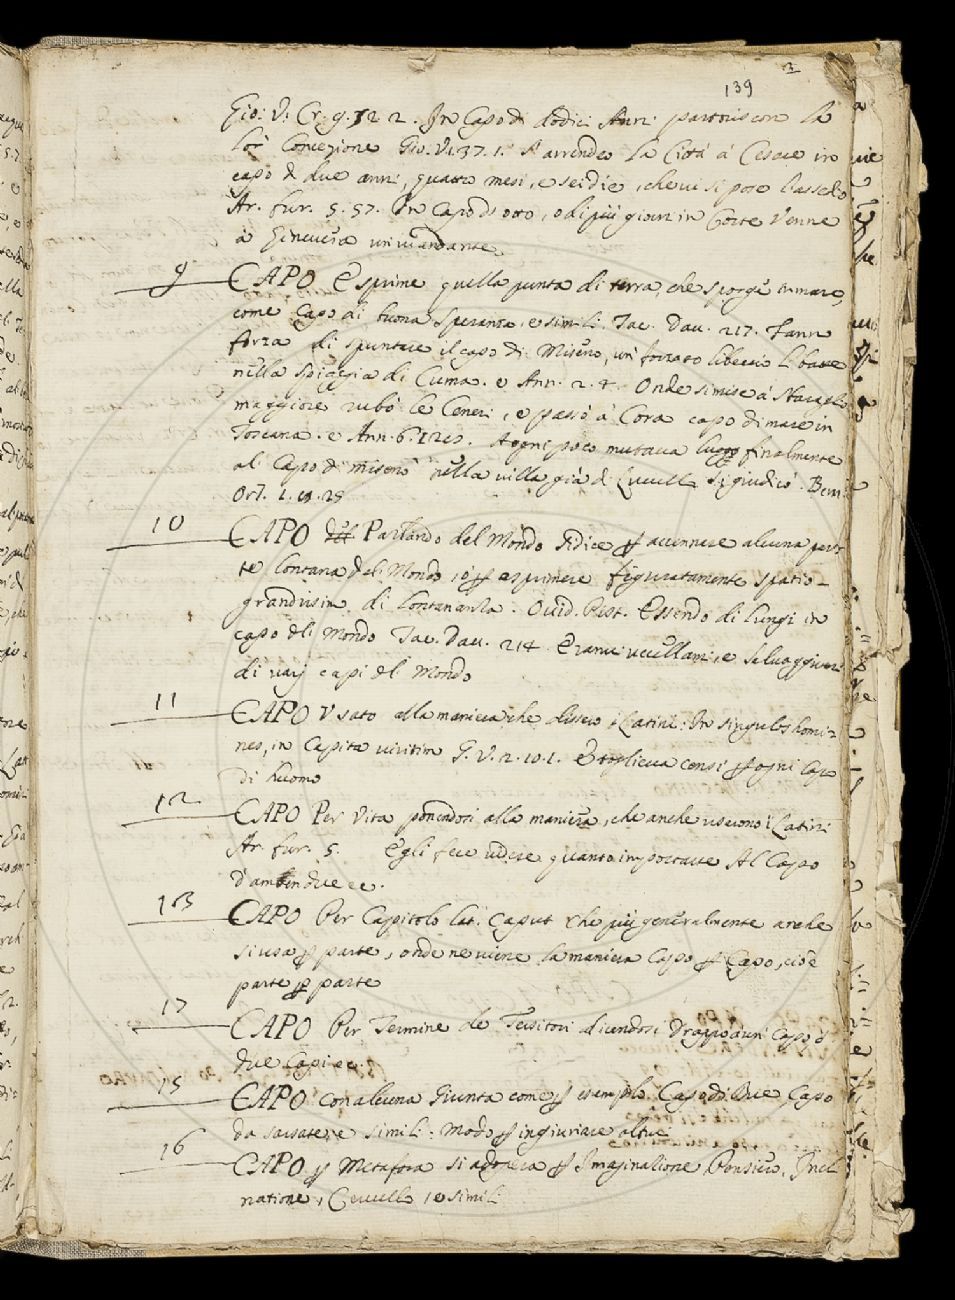 139
Gio: V: Cr. 9. 32 2. In Capo di dodici Anni partoriscon la
lor Concezione Gio. V. 37. 1. S'arrendeo la Città à Cesare in
capo di due anni, quatro mesi, e sei die, che vi si pose l'assedio
Ar. fur. 5. 57. In Capo di otto, o di più giorni in Corte venne
à Ginevera un viandante
9 CAPO Esprime quella punta di terra, che sporge in mare,
come Capo di buona Speranza, e simili. Tac. Dav. 217. Fanno
forza di spuntare il capo di Miseno, un forzato libeccio li batte
nella spiaggia di Cuma. e Ann. 2. 4. Onde si mise à
maggiore rubò le Ceneri, e passò à Cora capo di mare in
Toscana. e Ann. 6. 120. A ogni poco mutava luogo finalmente
al Capo di miseno nella villa già di Lucullo si giudicò. Bern.
Orl. 1. 18. 28
10 CAPO Parlando del Mondo si dice per accennare alcuna par
te lontana del Mondo, ò per esprimere figuratamente spatio
grandissim. di lontananza. Ovid. Pist. Essendo di lungi in
capo del Mondo Tac. Dav. 214. Eranvi uccellami, e salvaggiumi
di varj capi del Mondo
11 CAPO Usato alla maniera che dissero i Latini: In singulos homi-
nes, in Capita viritim G. V. 2. 10. 1. E toglieva censi per ogni capo
di huomo
12 CAPO Per Vita ponendosi alla maniera, che anche usarono i Latini
Ar. fur. 5. Egli fece vedere quanto importava Al Capo
d'ambendue ec.
13 CAPO Per Capitolo lat. Caput che più generalmente anche
si usa per parte, onde ne viene la maniera Capo per Capo, cioè
parte per parte
17 CAPO Per Termine de Tessitori dicendosi Drappo a un Capo ò
due Capi ec.
15 CAPO con alcuna Giunta come per esempio Capo di Bue Capo
da sassate, e simili: modo per ingiuriare altrui
16 CAPO per Metafora si adopera per Imaginazione Pensiero, Incli
natione, Cervello, e simili